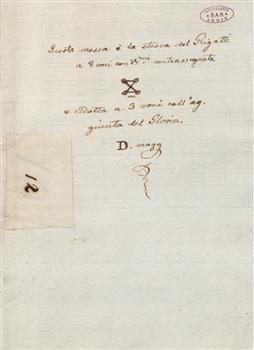 Questa messa è la stessa del Rigatti
a 8 voci con Vni contrassegnata
e ridotta a 3 voci coll'ag
giunta del Gloria.
D. magg
12